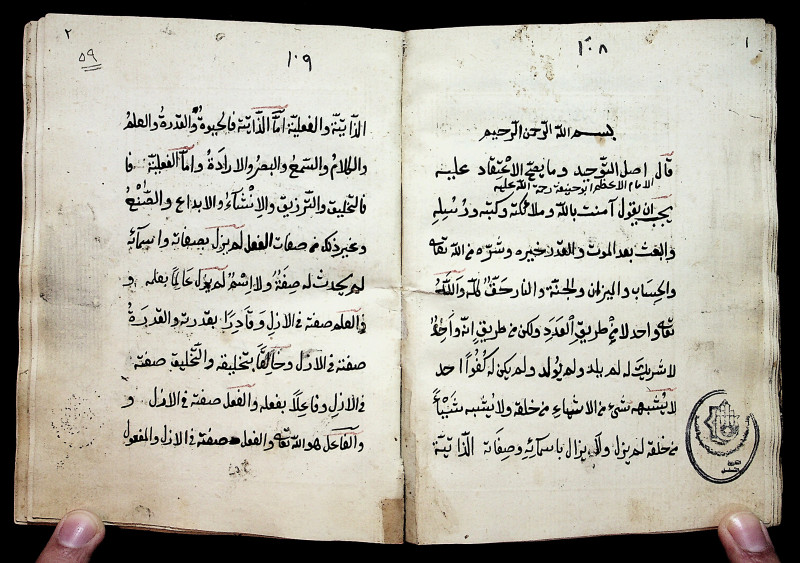 ١
١٠٨
بسم الله الرحمن الرحيم
قال اصل التوحيد وما يصح الاعتقاد عليه
الامام الاعظم ابو حنيفة رحمة الله عليه
يجب ان يقول آمنت بالله وملائكته وكتبه ورسله
والبعث بعد الموت والقدر خيره وشره من الله تعالى
والحساب والميزان والجنة والنار حق كله والله
تعالى واحد لا من طريق العدد ولكن من طريق انه واحد
لا شريك له لم يلد ولم يولد ولم يكن له كفوا احد
لا يشبهه شئ من الاشياء من خلقه ولا يشبه شيئا
من خلقه لم يزل ولا يزال باسمائه وصفاته الذاتية
٢
٥٩
١٠٩
الذاتية والفعلية اما الذاتية فالحيوة والقدرة والعلم
والكلام والسمع والبصر والارادة واما الفعلية فا
فالتخليق والترزيق والانشاء والابداع والصنع
وغير ذلك من صفات الفعل لم يزل بصفاته واسمائه
لم يحدث له صفة ولا اسم لم يزل عالما بعلمه و
والعلم صفته في الازل وقادرا بقدرته والقدرة
صفته في الازل وخالقا بتخليقه والتخليق صفته
في الازل وفاعلا بفعله والفعل صفته في الازل و
والفاعل هو الله تعالى والفعل صفته في الازل والمفعول